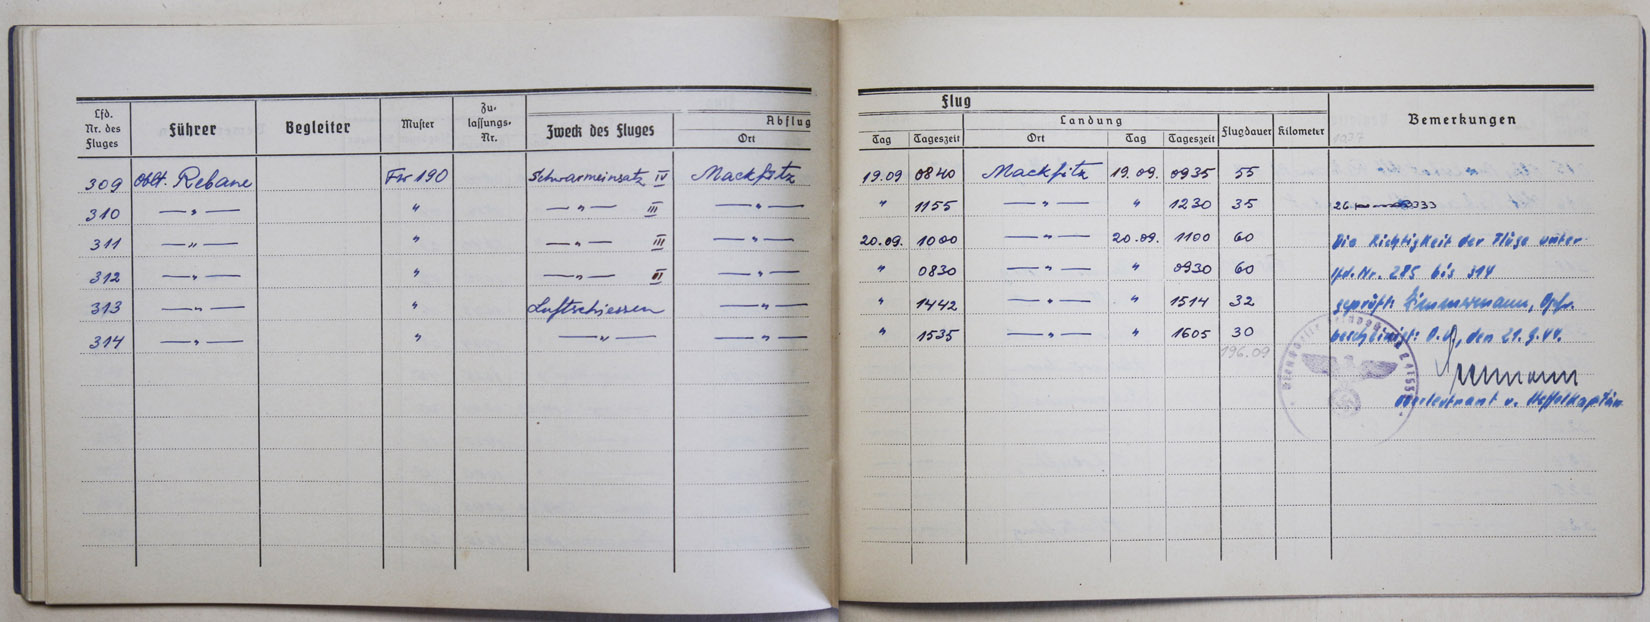 Lfd. Nr. des Fluges Führer Begleiter Muster Zu- lassungs- Nr. Zweck des Fluges Abflug Ort Tag Tageszeit Flug Landung Ort Tag Tageszeit Flugdauer Kilometer Bemerkungen
309 Oblt. Rebane Fw 190 Schwarmeinsatz IV Mackfitz 19.09 0840 Mackfitz 19.09. 0935 55
310 —„— „ —„— III —„— „ 1155 —„— „ 1230 35
311 —„— „ —„— III —„— 20.09. 1000 —„— 20.09. 1100 60 Die Richtigkeit der Flüge unter
312 —„— „ —„— —„— „ 0830 —„— „ 0930 60 lfd. Nr. 285 bis 314
313 —„— „ Luftschiessen —„— „ 1442 —„— „ 1514 32 geprüft: Zimmermann,
314 —„— „ —„— —„— „ 1535 —„— „ 1605 30 bescheinigt: O.U., den 21.9.44.
196.09
Oberleutnant u. Staffelkapitän